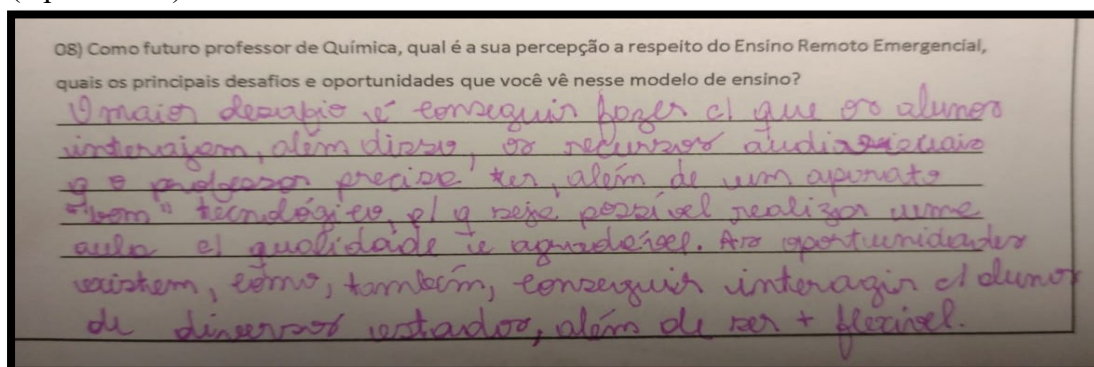 08) Como futuro professor de Química, qual é a sua percepção a respeito do Ensino Remoto Emergencial,
quais os principais desafios e oportunidades que você vê nesse modelo de ensino?
O maior desafio é conseguir fazer c/ que os alunos
interajam, além disso, os recursos audiovisuais
q o professor precisa ter, além de um aparato
"bom" tecnológico, p/ q seja possível realizar uma
aula c/ qualidade e agradável. As oportunidades
existem, como, também, conseguir interagir c/ alunos
de diversos estados, além de ser + flexível.